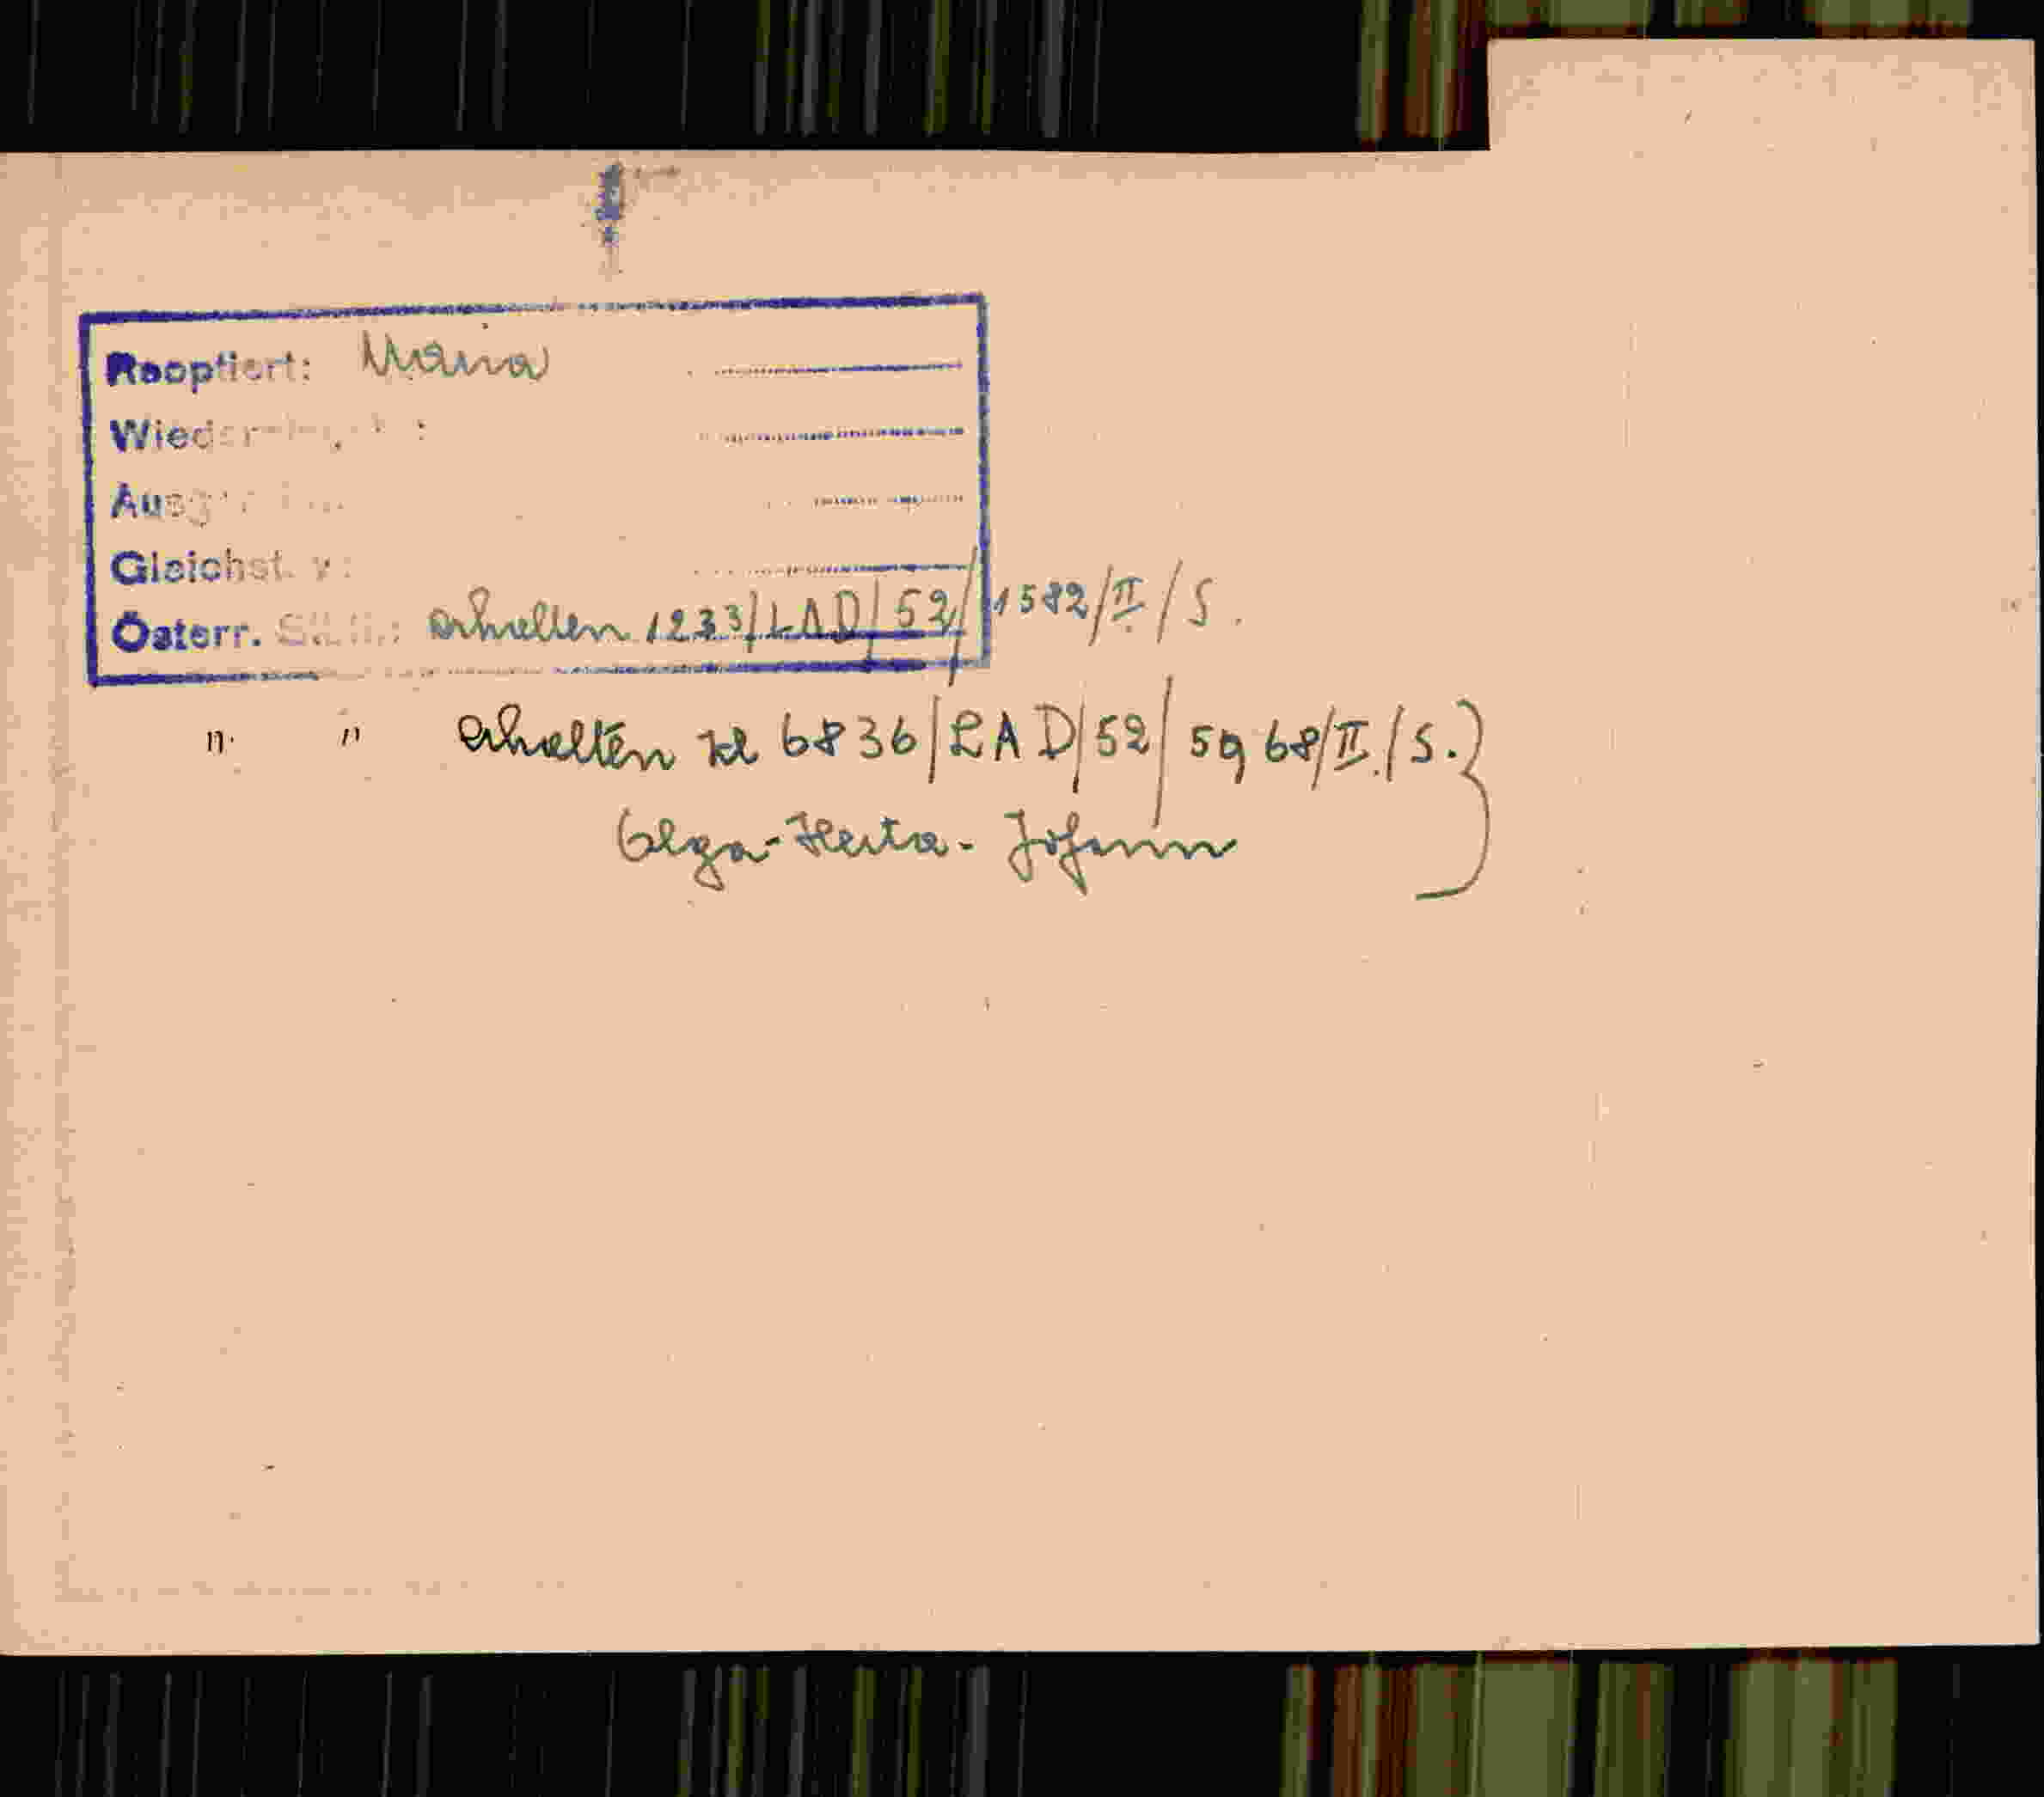 Rooptiert: Maria
Wieder
Ausg
Gleichst. v:
Österr. erhalten 1233/LAD/52/1582/II/S.
" " erhalten Zl 6836/LAD/52/5968/II./S.}
Olga-Herta-Johann